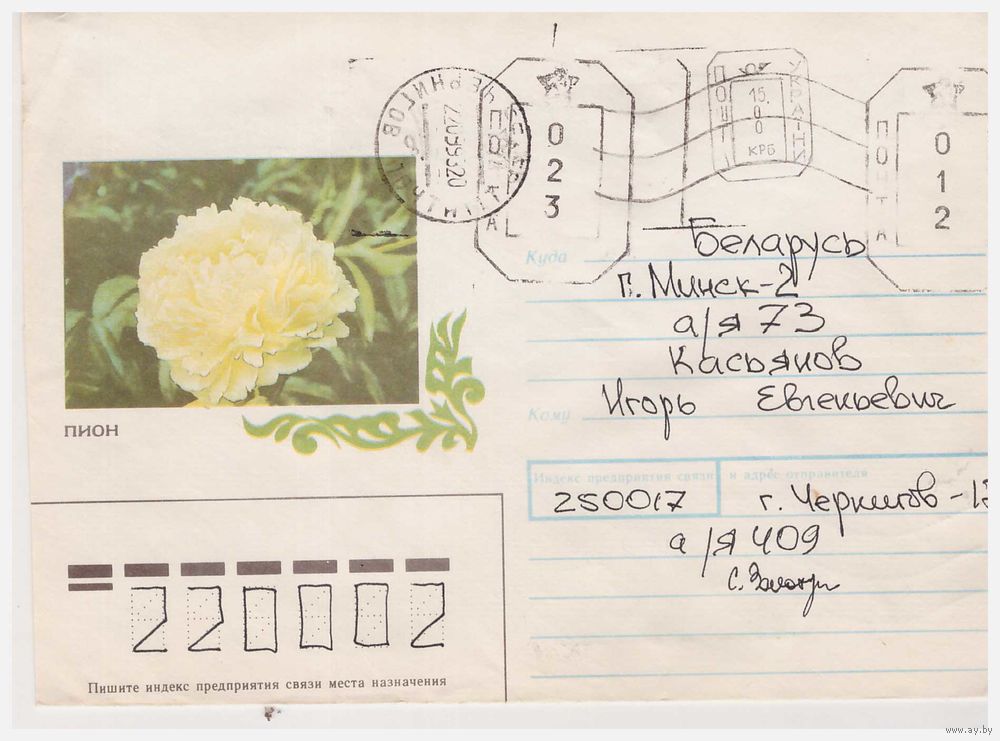 ЧЕРНИГОВ
ПОШТА
0
2
3
ПОШТА
УКРАЇНИ
15.
0
0
КРБ
ПОЧТА
0
1
2
Куда
Беларусь
г. Минск-2
а/я 73
Касьянов
Кому
Игорь Евгеньевич
ПИОН
Индекс предприятия связи и адрес отправителя
250017 г. Чернигов-17
а/я 409
220002
Пишите индекс предприятия связи места назначения
www.ay.by